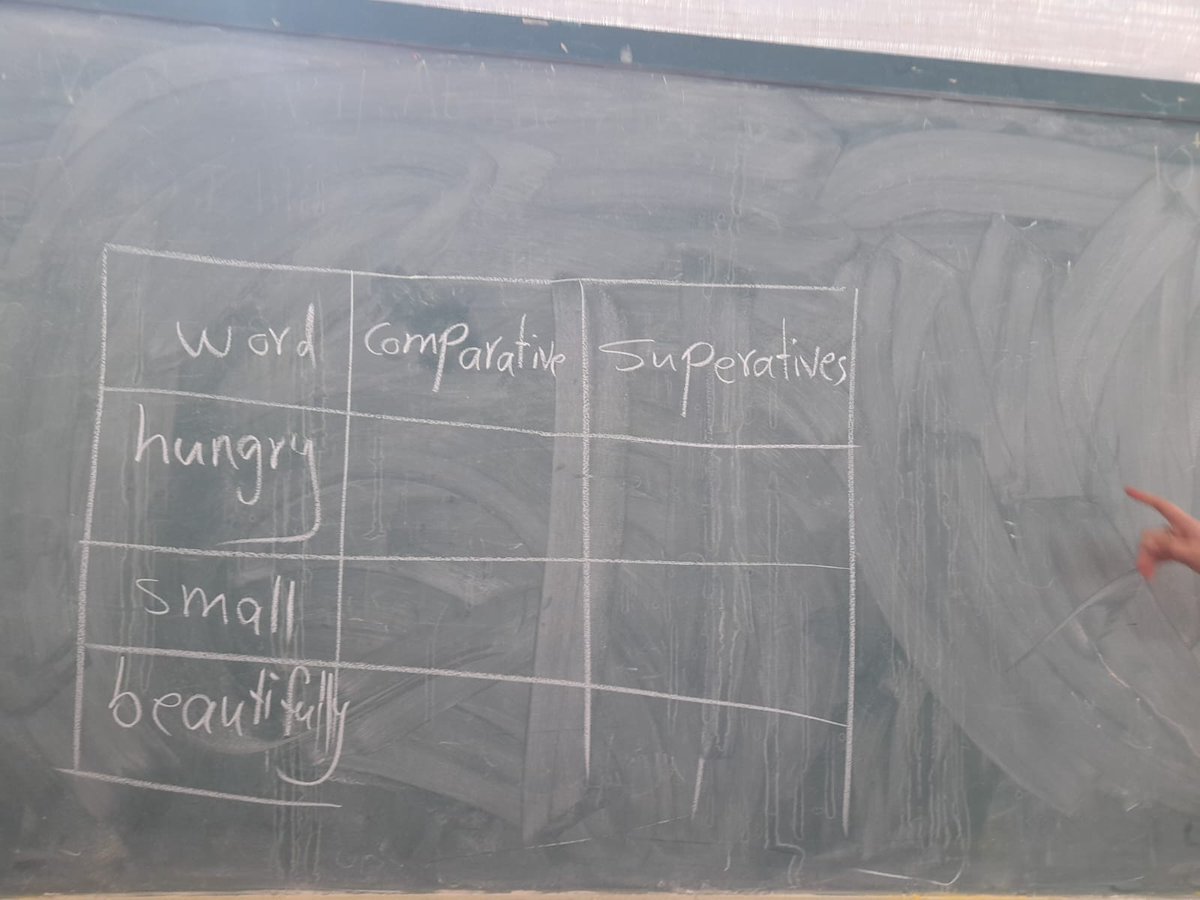 word comparative superatives
hungry
small
beautifully